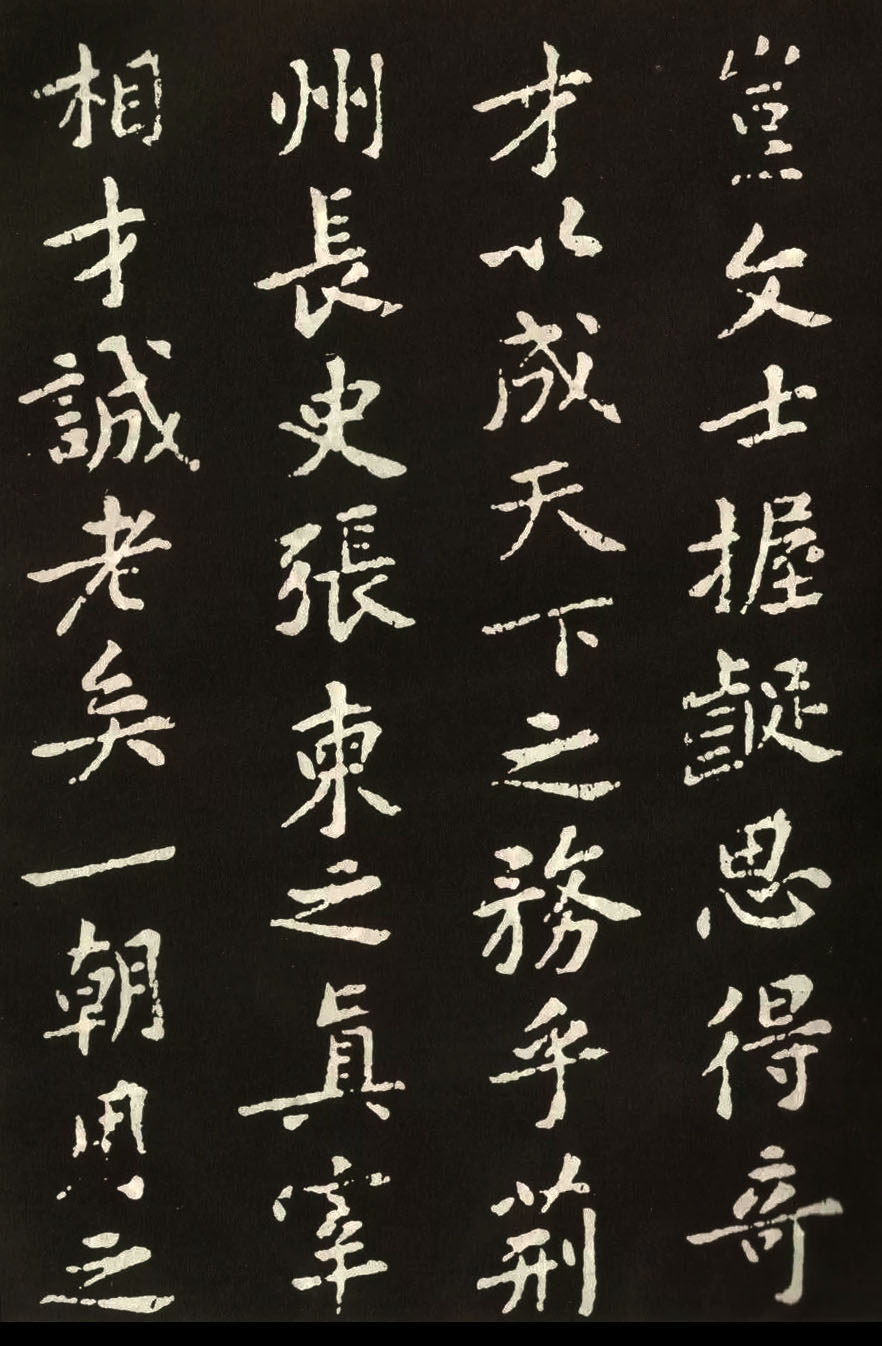 豈文士握齪思得奇
才以成天下之務乎荊
州長史張柬之真宰
相才誠老矣一朝用之